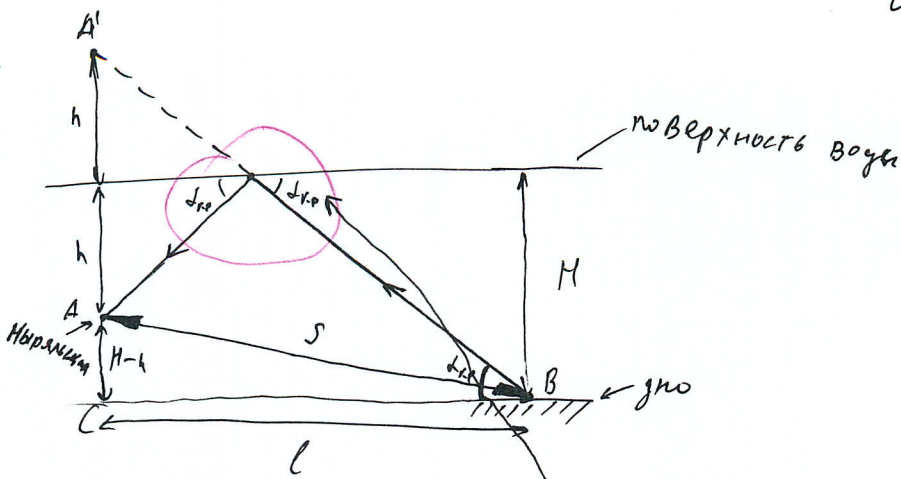 A'
h
поверхность воды
αкр
αкр
h
H
A
Ныряльщик
S
H-h
αкр
B
дно
C
l